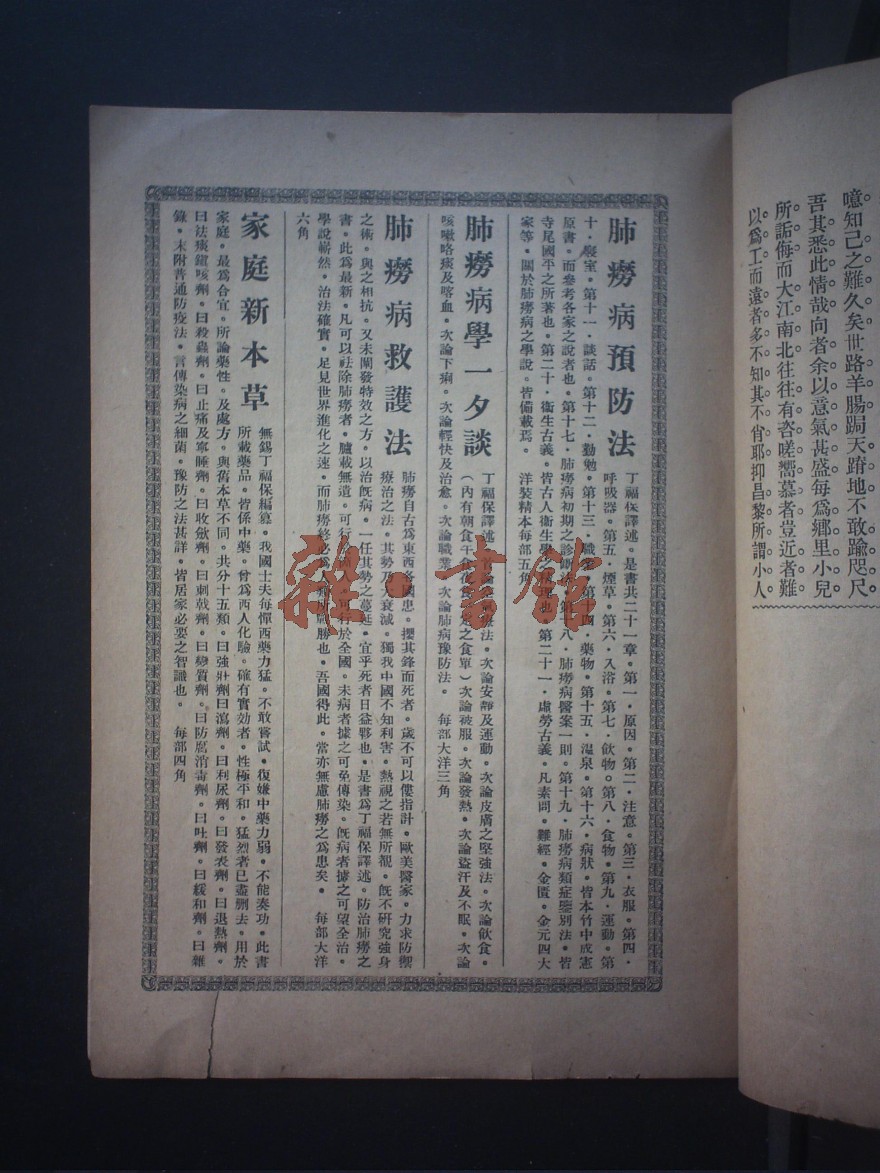 噫知己之難久矣世路羊腸跼天蹐地不敢踰咫尺
吾其悉此情哉向者余以意氣甚盛每爲鄉里小兒
所詬侮而大江南北往往有咨嗟嚮慕者豈近者難
以爲工而遠者多不知其不肖耶抑昌黎所謂小人
肺癆病預防法
丁福保譯述。是書共二十一章。第一．原因。第二．注意。第三．衣服。第四．
呼吸器。第五．煙草。第六．入浴。第七．飲物。第八．食物。第九．運動。第
十．寢室。第十一．談話。第十二．勤勉。第十三．職業。第十四．藥物。第十五．溫泉。第十六．病狀。皆本竹中成憲
原書。而參考各家之說者也。第十七．肺癆病初期之診斷。第十八．肺癆病醫案一則。第十九．肺癆病類症鑒別法。皆
寺尾國平之所著也。第二十．衛生古義。皆古人衛生學之眞理也。第二十一．虛勞古義。凡素問。難經。金匱。金元四大
家等。關於肺癆病之學說。皆備載焉。 洋裝精本每部五角
肺癆病學一夕談
丁福保譯述。首論空氣療法。次論安靜及運動。次論皮膚之堅強法。次論飲食。
（內有朝食午食夜食一定之食單）次論被服。次論發熱。次論盜汗及不眠。次論
咳嗽咯痰及喀血。次論下痢。次論輕快及治愈。次論職業。次論肺病豫防法。 每部大洋三角
肺癆病救護法
肺癆自古爲東西各國患。攖其鋒而死者。歲不可以僂指計。歐美醫家。力求防禦
療治之法。其勢乃大衰減。獨我中國不知利害。熱視之若無所覩。旣不硏究強身
之術。與之相抗。又未闡發特效之方。以治旣病。一任其勢之蔓延。宜乎死者日益夥也。是書爲丁福保譯述。防治肺癆之
書。此爲最新。凡可以祛除肺癆者。臚載無遺。可行於個人。可行於全國。未病者據之可免傳染。旣病者據之可望全治。
學說嶄然。治法確實。足見世界進化之速。而肺癆終必爲人類所戰勝也。吾國得此。當亦無慮肺癆之爲患矣。 每部大洋
六角
家庭新本草
無錫丁福保編纂。我國士夫每憚西藥力猛。不敢嘗試。復嫌中藥力弱。不能奏功。此書
所載藥品。皆係中藥。曾爲西人化驗。確有實効者。性極平和。猛烈者已盡刪去。用於
家庭。最爲合宜。所論藥性。及處方。與舊本草不同。共分十五類。曰強壯劑曰瀉劑。曰利尿劑。曰發表劑。曰退熱劑。
曰祛痰鎭咳劑。曰殺蟲劑。曰止痛及寧睡劑。曰收歛劑。曰刺戟劑。曰變質劑。曰防腐消毒劑。曰吐劑。曰緩和劑。曰雜
錄。末附普通防疫法。言傳染病之細菌。豫防之法甚詳。皆居家必要之智識也。 每部四角
雜·書館